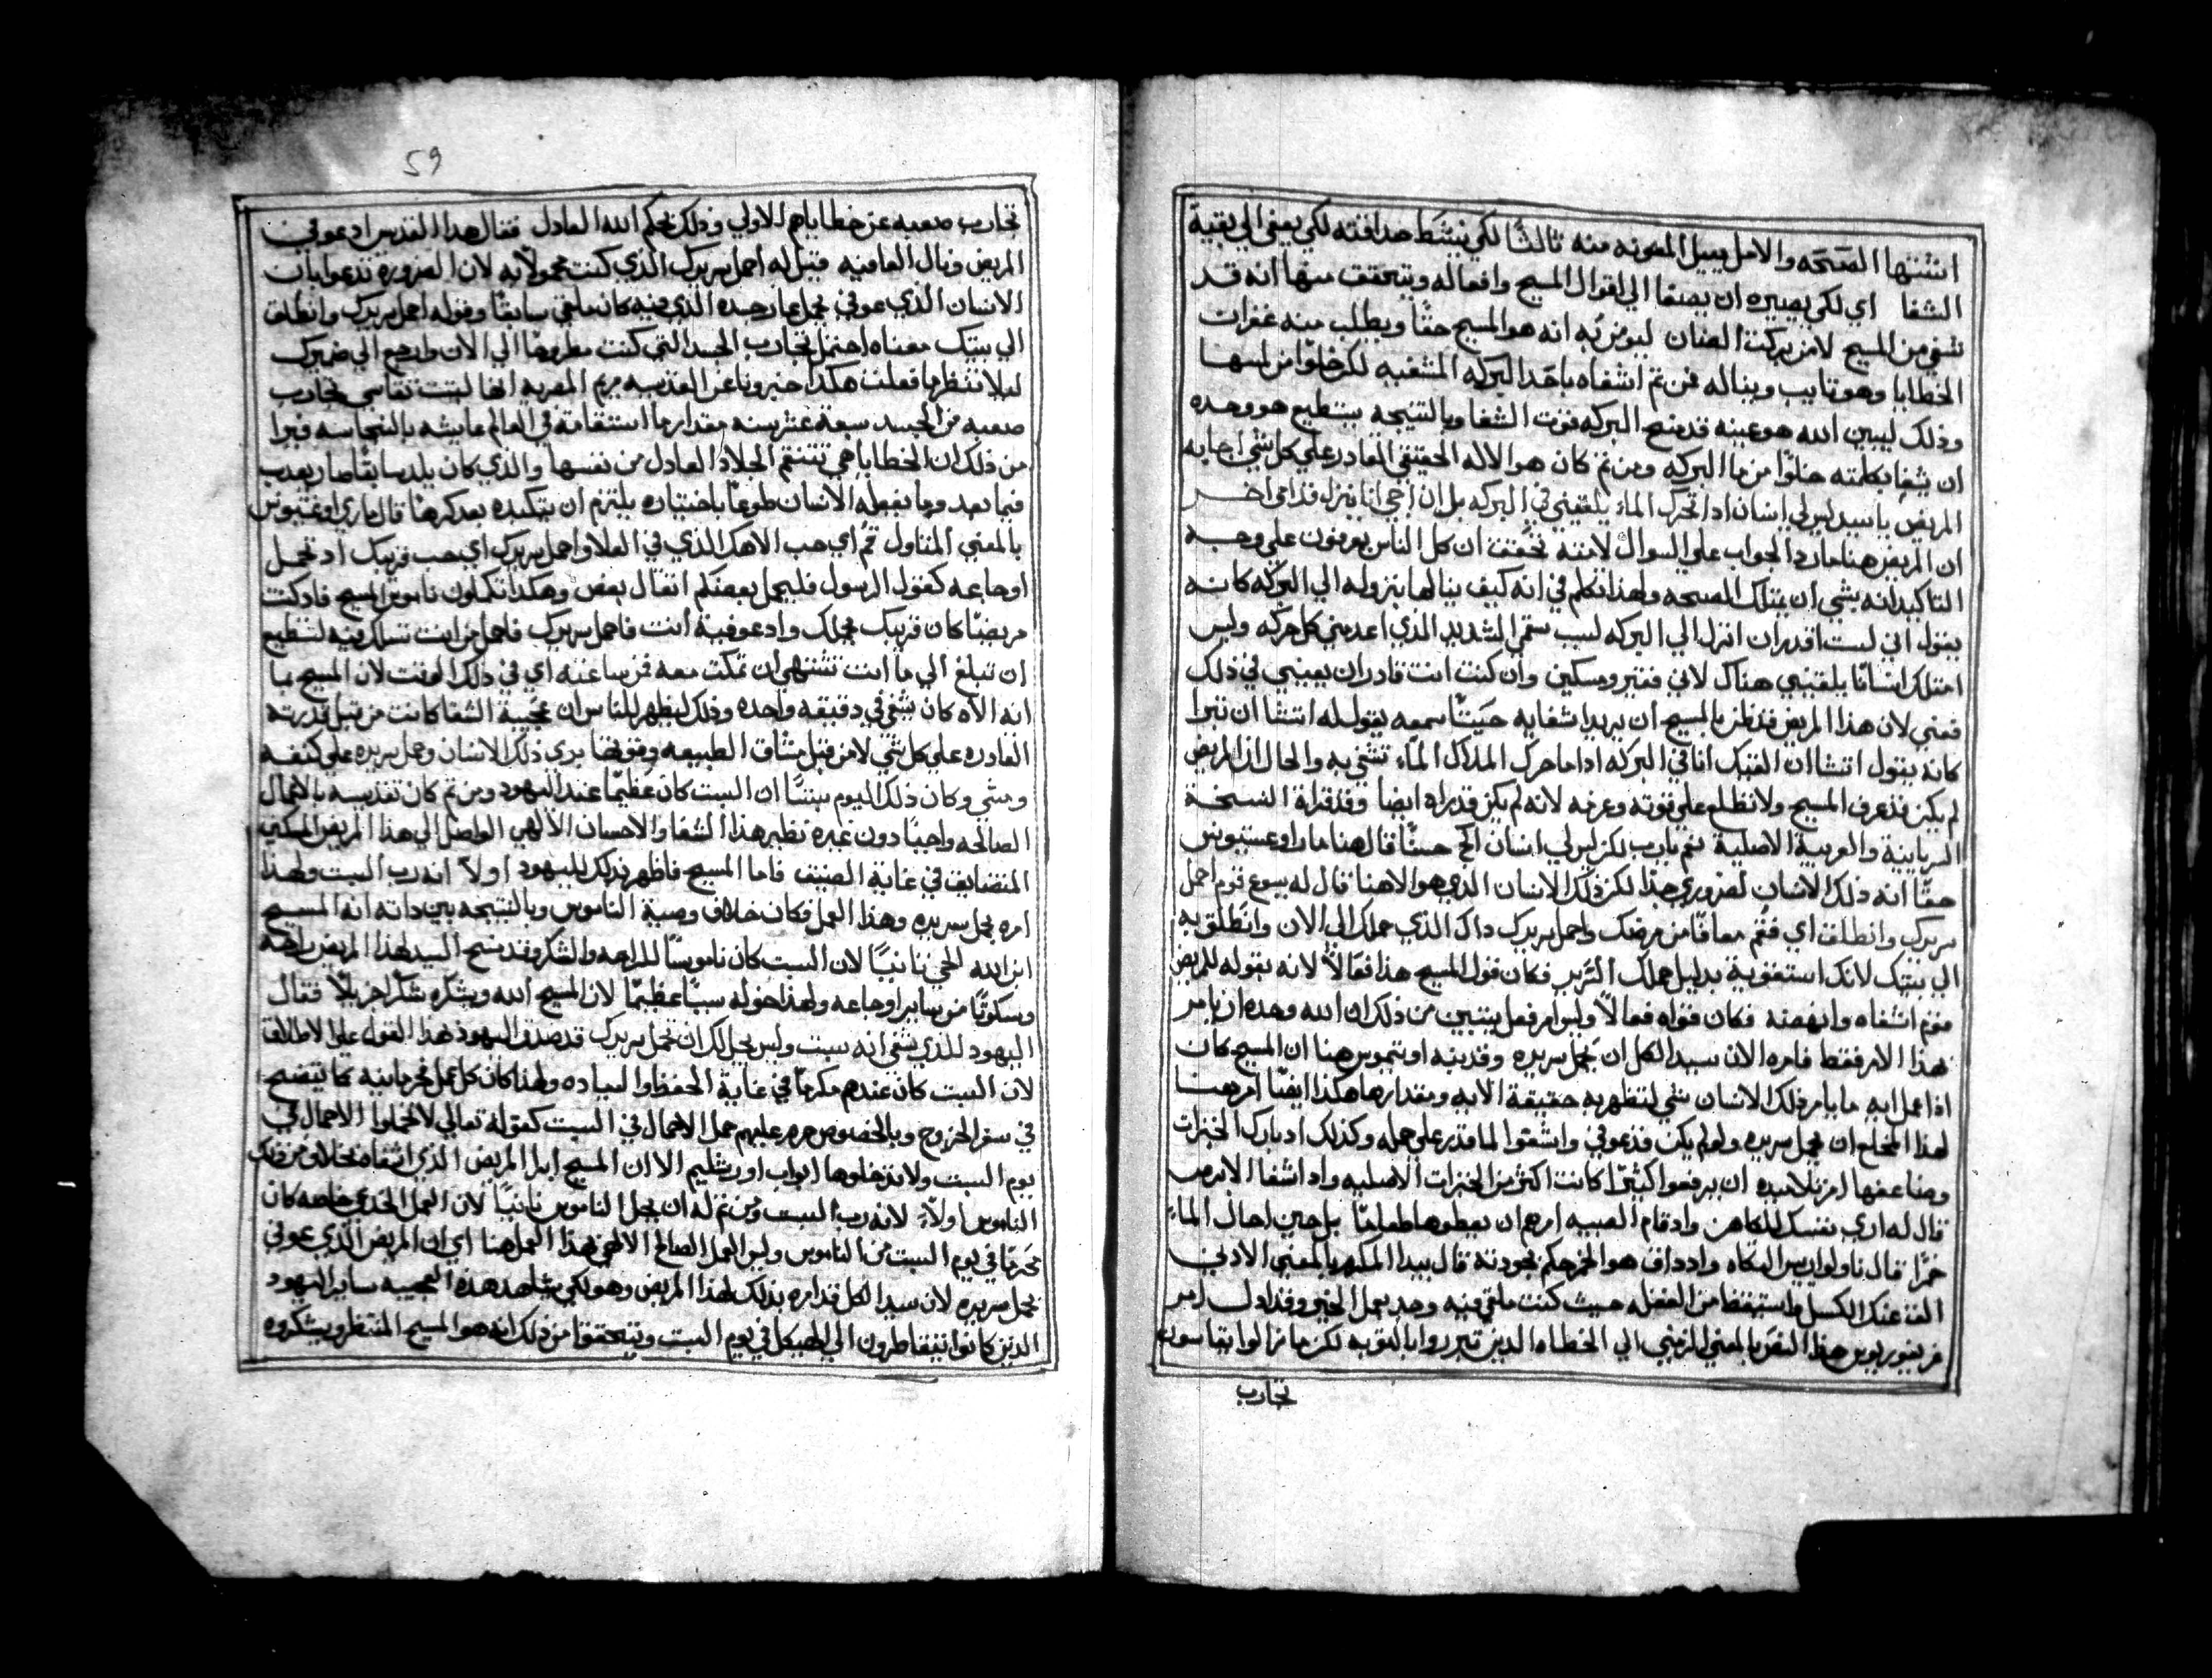 اشتهها الصحه والامل بنيل المعونه منه ثالثًا لكي ينشط صداقته لكي يصغي الي بقية
الشفا اي لكي يصيره ان يصغا الي اقوال المسيح وافعاله ويتحقق منها انه قد
شفي من المسيح لا من بركت الضان ليومن به انه هو المسيح حقًا ويطلب منه غفران
الخطايا وهو تايب ويناله فمن ثم اشفاه باحد البركه المشفيه لكن خلوًا من لمسها
وذلك ليبين الله هو عينه قد منح البركه قوت الشفا وبالنتيجه يستطيع هو وحده
ان يشفي بكلمته خلوًا من ما البركه ومن ثم كان هو الاله الحقيقي القادر علي كل شي اجابه
المريض يا سيد ليس لي انسان اذا تحرك الماء يلقيني في البركه بل ان اجي انا ينزل قدامي اخر
ان المريض هنا ما رد الجواب علي السوال لانته تحقق ان كل الناس يعرفون علي وجه
التاكيد انه يشي ان يمتلك الصحه ولهذا تكلم في انه كيف ينالها بنزوله الي البركه كانه
يقول اني لست اقدر ان انزل الي البركه لسبب سقمي الشديد الذي اعدمني كل حركه وليس
امتلك انسانًا يلقيني هناك لاني فقير ومسكين وان كنت انت قادر ان يعينني في ذلك
فعني لان هذا المريض قد ظن بالمسيح ان يريد اشفايه حينًا سمعه يقول له اتشا ان تبرا
كانه يقول اتشا ان القيك انا في البركه اذا ما حرك الملاك الماء تشفي به والحال ان المريض
لم يكن قد عرف المسيح ولا تطلع علي قوته وعزمه لانه لم يكن قد راه ايضًا وقد قراة النسخة
السريانية والعربية الاصلية نعم يا رب لكن ليس لي انسان الخ حسنًا قال هنا مار اوغسطينوس
حقًا انه ذلك الانسان لضروري جدًا لكن ذلك الانسان الذي هو الاهنا قال له يسوع قوم احمل
سريرك وانطلق اي فقم معافًا من مرضك واحمل سريرك ذاك الذي حملك الي الان وانطلق به
الي بيتك لانك استقوية بدليل حملك السرير فكان قول المسيح هذا فعالاً لانه بقوله للمريض
قوم اشفاه وانهضه فكان قوله فعالاً وليس امر فعل يتبين من ذلك ان الله وحده ان يامر
بهذا الامر فقط فامره الان سيد الكل ان يحمل سريره وقد بينه اوتيموس هنا ان المسيح كان
اذا عمل ايه ما يامر ذلك الانسان بشي لتظهر به حقيقة الايه ومقدارها هكذا ايضًا امر هنا
لهذا المخلع ان يحمل سريره ولو لم يكن قد عوفي واشفوا لما قدر علي حمله وكذلك اذ بارك الخبزات
وضاعفها امر تلاميذه ان يرفعوا كثيرًا كانت اكثر من الخبزات الاصليه واذ اشفا الابرص
قال له اري نفسك للكاهن واذ قام الصبيه امرهم ان يعطوها طعامًا بل حين احال الماء
خمرًا قال ناولوا رييس المتكاه واذ ذاق هو الخمر حكم بجودته قال بيدا المكرم بالمعني الادبي
الق عنك الكسل واستيقظ من الغفله حيث كنت ملقي فيه وجد بعمل الخير وقد اول امر
غريغوريوس هذا النص بالمعني الرمزي الي الخطاه الذين تبرروا بالتوبه لكن ما زالوا يقاسون
تجارب
59
تجارب صعبه عن خطاياهم الاولي وذلك بحكم الله العادل فقال هذا القديس اذ عوفي
المريض ونال العافيه قيل له احمل سريرك الذي كنت محمولاً به لان الضروره تدعوا بان
الانسان الذي عوفي يحمل عار جسده الذي فيه كان ملقي سابقًا وقوله احمل سريرك وانطلق
الي بيتك معناه احتمل تجارب الجسد التي كنت مطروحًا الي الان وارجع الي ضميرك
ليلا تنظر ما فعلت هكذا اخبرونا عن القديسه مريم المصريه انها لبثت تقاسي تجارب
صعبه من الجسد سبعة عشر سنه مقدار ما استقامة في العالم عايشه بالنجاسه فيرا
من ذلك ان الخطايا هي تنتقم الجلاد العادل من نفسها والذي كان يلد سابقًا صار يعذب
فيما بعد وما يفعله الانسان طوعًا باختياره يلتزم ان يتكبده بعد كرهًا قال ماري اوغسطينوس
بالمعني المتاول قم اي حب الاهك الذي في العلا واحمل سريرك اي حب قريبك اذ تحمل
اوجاعه كقول الرسول فليحمل بعضكم اثقال بعض وهكذا تكملون ناموس المسيح فاذ كنت
مريضًا كان قريبك يحملك واذ عوفية أنت فاحمل سريرك فاحمل من انت تسلك فيه لتستطيع
ان تبلغ الي ما انت تشتهي ان تمكث معه فمن ساعته اي في ذلك الوقت لان المسيح بما
انه الاه كان يشفي في دقيقه واحده وذلك ليظهر للناس ان عجيبة الشفا كانت من قبل قدرته
القادره علي كل شي لا من قبل مشاق الطبيعه وقوتها بري ذلك الانسان وحمل سريره علي كتفه
ومشي وكان ذلك اليوم سبتًا ان السبت كان عظيمًا عند اليهود ومن ثم كان تقديسه بالاعمال
الصالحه واجبًا دون غيره نظير هذا الشفا والاحسان الالهي الواصل الي هذا المريض المسكين
المتضايق في غاية الضيق فاما المسيح فاظهر بذلك لليهود اولاً انه رب السبت ولهذا
امره بحمل سريره وهذا العمل فكان خلاف وصية الناموس وبالنتيجه بين ذاته انه المسيح
ابن الله الحي ثانيًا لان السبت كان ناموسًا للراحه والشكر وقد منح السيد لهذا المريض راحه
وسكونًا من ساير اوجاعه ولهذا خوله سببًا عظيمًا لان المسيح الله ويشكره شكرًا جزيلاً فقال
اليهود للذي شفي انه سبت وليس يحل لك ان تحمل سريرك قد صدق اليهود هذا القول علي الاطلاق
لان السبت كان عندهم مكرمًا في غاية الحفظ والعباده ولهذا كان كل عمل محرمًا فيه كما يتضح
في سفر الخروج وبالخصوص حرم عليهم حمل الاحمال في السبت كقوله تعالي لا تحملوا الاحمال في
يوم السبت ولا تدخلوها ابواب اورشليم الا ان المسيح ابرا المريض الذي اشفاه بخلاف من ذلك
الناموس اولاً لانه رب السبت ومن ثم له ان يحل الناموس ثانيًا لان العمل الخدمي خاصه كان
محرمًا في يوم السبت من الناموس وليس العمل الصالح الالهي بهذا العمل هنا اي ان المريض الذي عوفي
يحمل سريره لان سيد الكل قد امره بذلك لهذا المريض وهو لكي يشاهد هذه العجيبه ساير اليهود
الذين كانوا يتقاطرون الي الهيكل في يوم السبت ويتحققوا من ذلك انه هو المسيح المنتظر ويشكروه